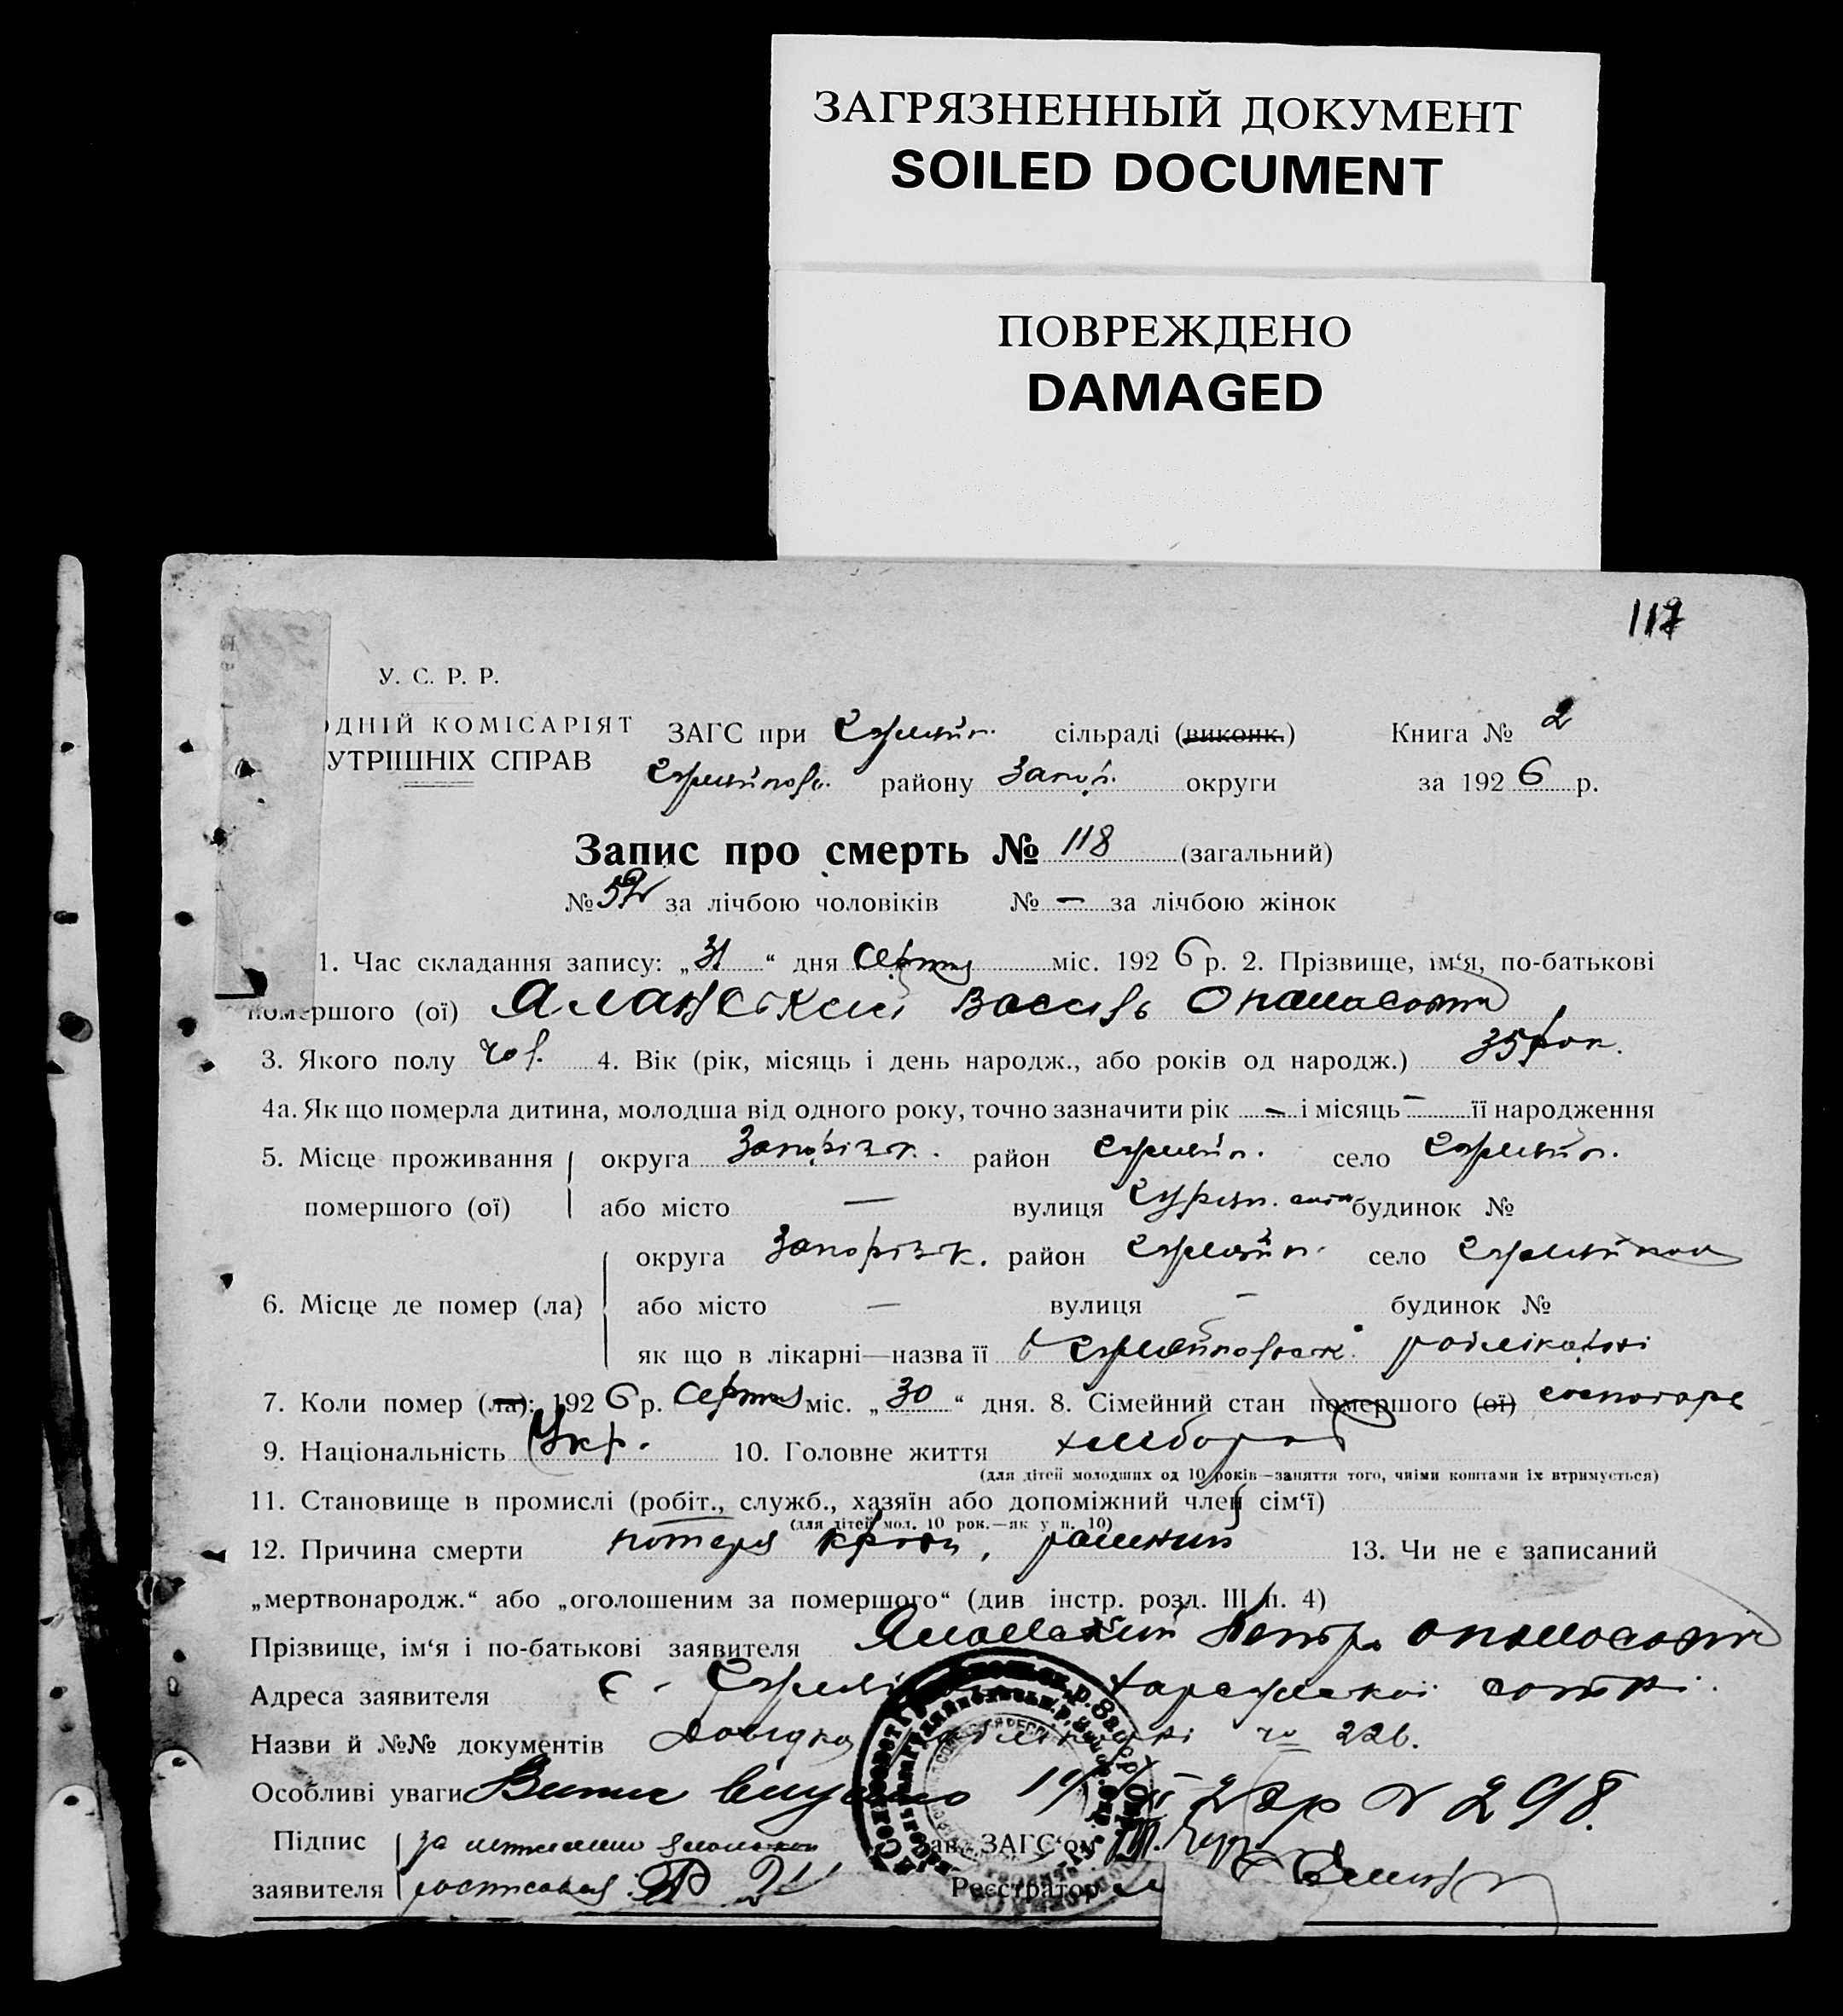 ЗАГРЯЗНЕННЫЙ ДОКУМЕНТ
SOILED DOCUMENT
ПОВРЕЖДЕНО
DAMAGED
117
У. С. Р. Р.
ОДНІЙ КОМІСАРІЯТ
УТРІШНІХ СПРАВ
ЗАГС при сільраді (виконк.) Книга № 2
району Запор. округи за 1926 р.
Запис про смерть № 118 (загальний)
№ 59 за лічбою чоловіків № — за лічбою жінок
1. Час складання запису: „31“ дня Серпня міс. 1926 р. 2. Прізвище, ім‘я, по-батькові
помершого (ої) Яланський Василь Опанасович
3. Якого полу чол. 4. Вік (рік, місяць і день народж., або років од народж.) 35 рок.
4а. Як що померла дитина, молодша від одного року, точно зазначити рік — і місяць — її народження
5. Місце проживання округа Запорізк. район село
помершого (ої) або місто — вулиця будинок №
округа Запорізк. район село
6. Місце де помер (ла) або місто — вулиця — будинок №
як що в лікарні—назва її в райлікарні
7. Коли помер (ла): 1926 р. Серпня міс. „30“ дня. 8. Сімейний стан помершого (ої) господарь
9. Національність Укр. 10. Головне життя хлібороб
(для дітей молодших од 10 років—заняття того, чиїми коштами їх втримується)
11. Становище в промислі (робіт., служб., хазяїн або допоміжний член сім‘ї)
(для дітей мол. 10 рок.—як у п. 10)
12. Причина смерти потеря крови, 13. Чи не є записаний
„мертвонародж.“ або „оголошеним за помершого“ (див інстр. розд. III п. 4)
Прізвище, ім‘я і по-батькові заявителя Яланський Петро Опанасович
Адреса заявителя с. сотні.
Назви й №№ документів Довідка райлікарні № 226.
Особливі уваги Витяг видано № 298.
Підпис за Зав. ЗАГС‘ом
заявителя росписався Реєстратор